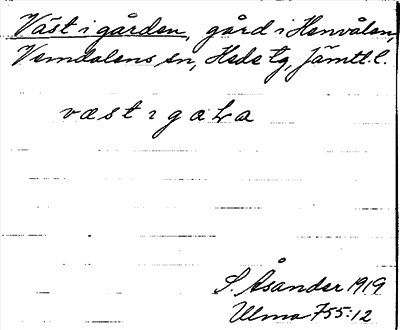 Väst i gården, gård i Henvålen,
Vemdalens sn, Hede tg, Jämtl. l.
väst ı gaLa
S. Åsander 1919
Ulma 755:12